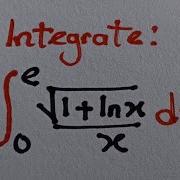 Integrate:
∫₀ᵉ √(1+lnx)/x d